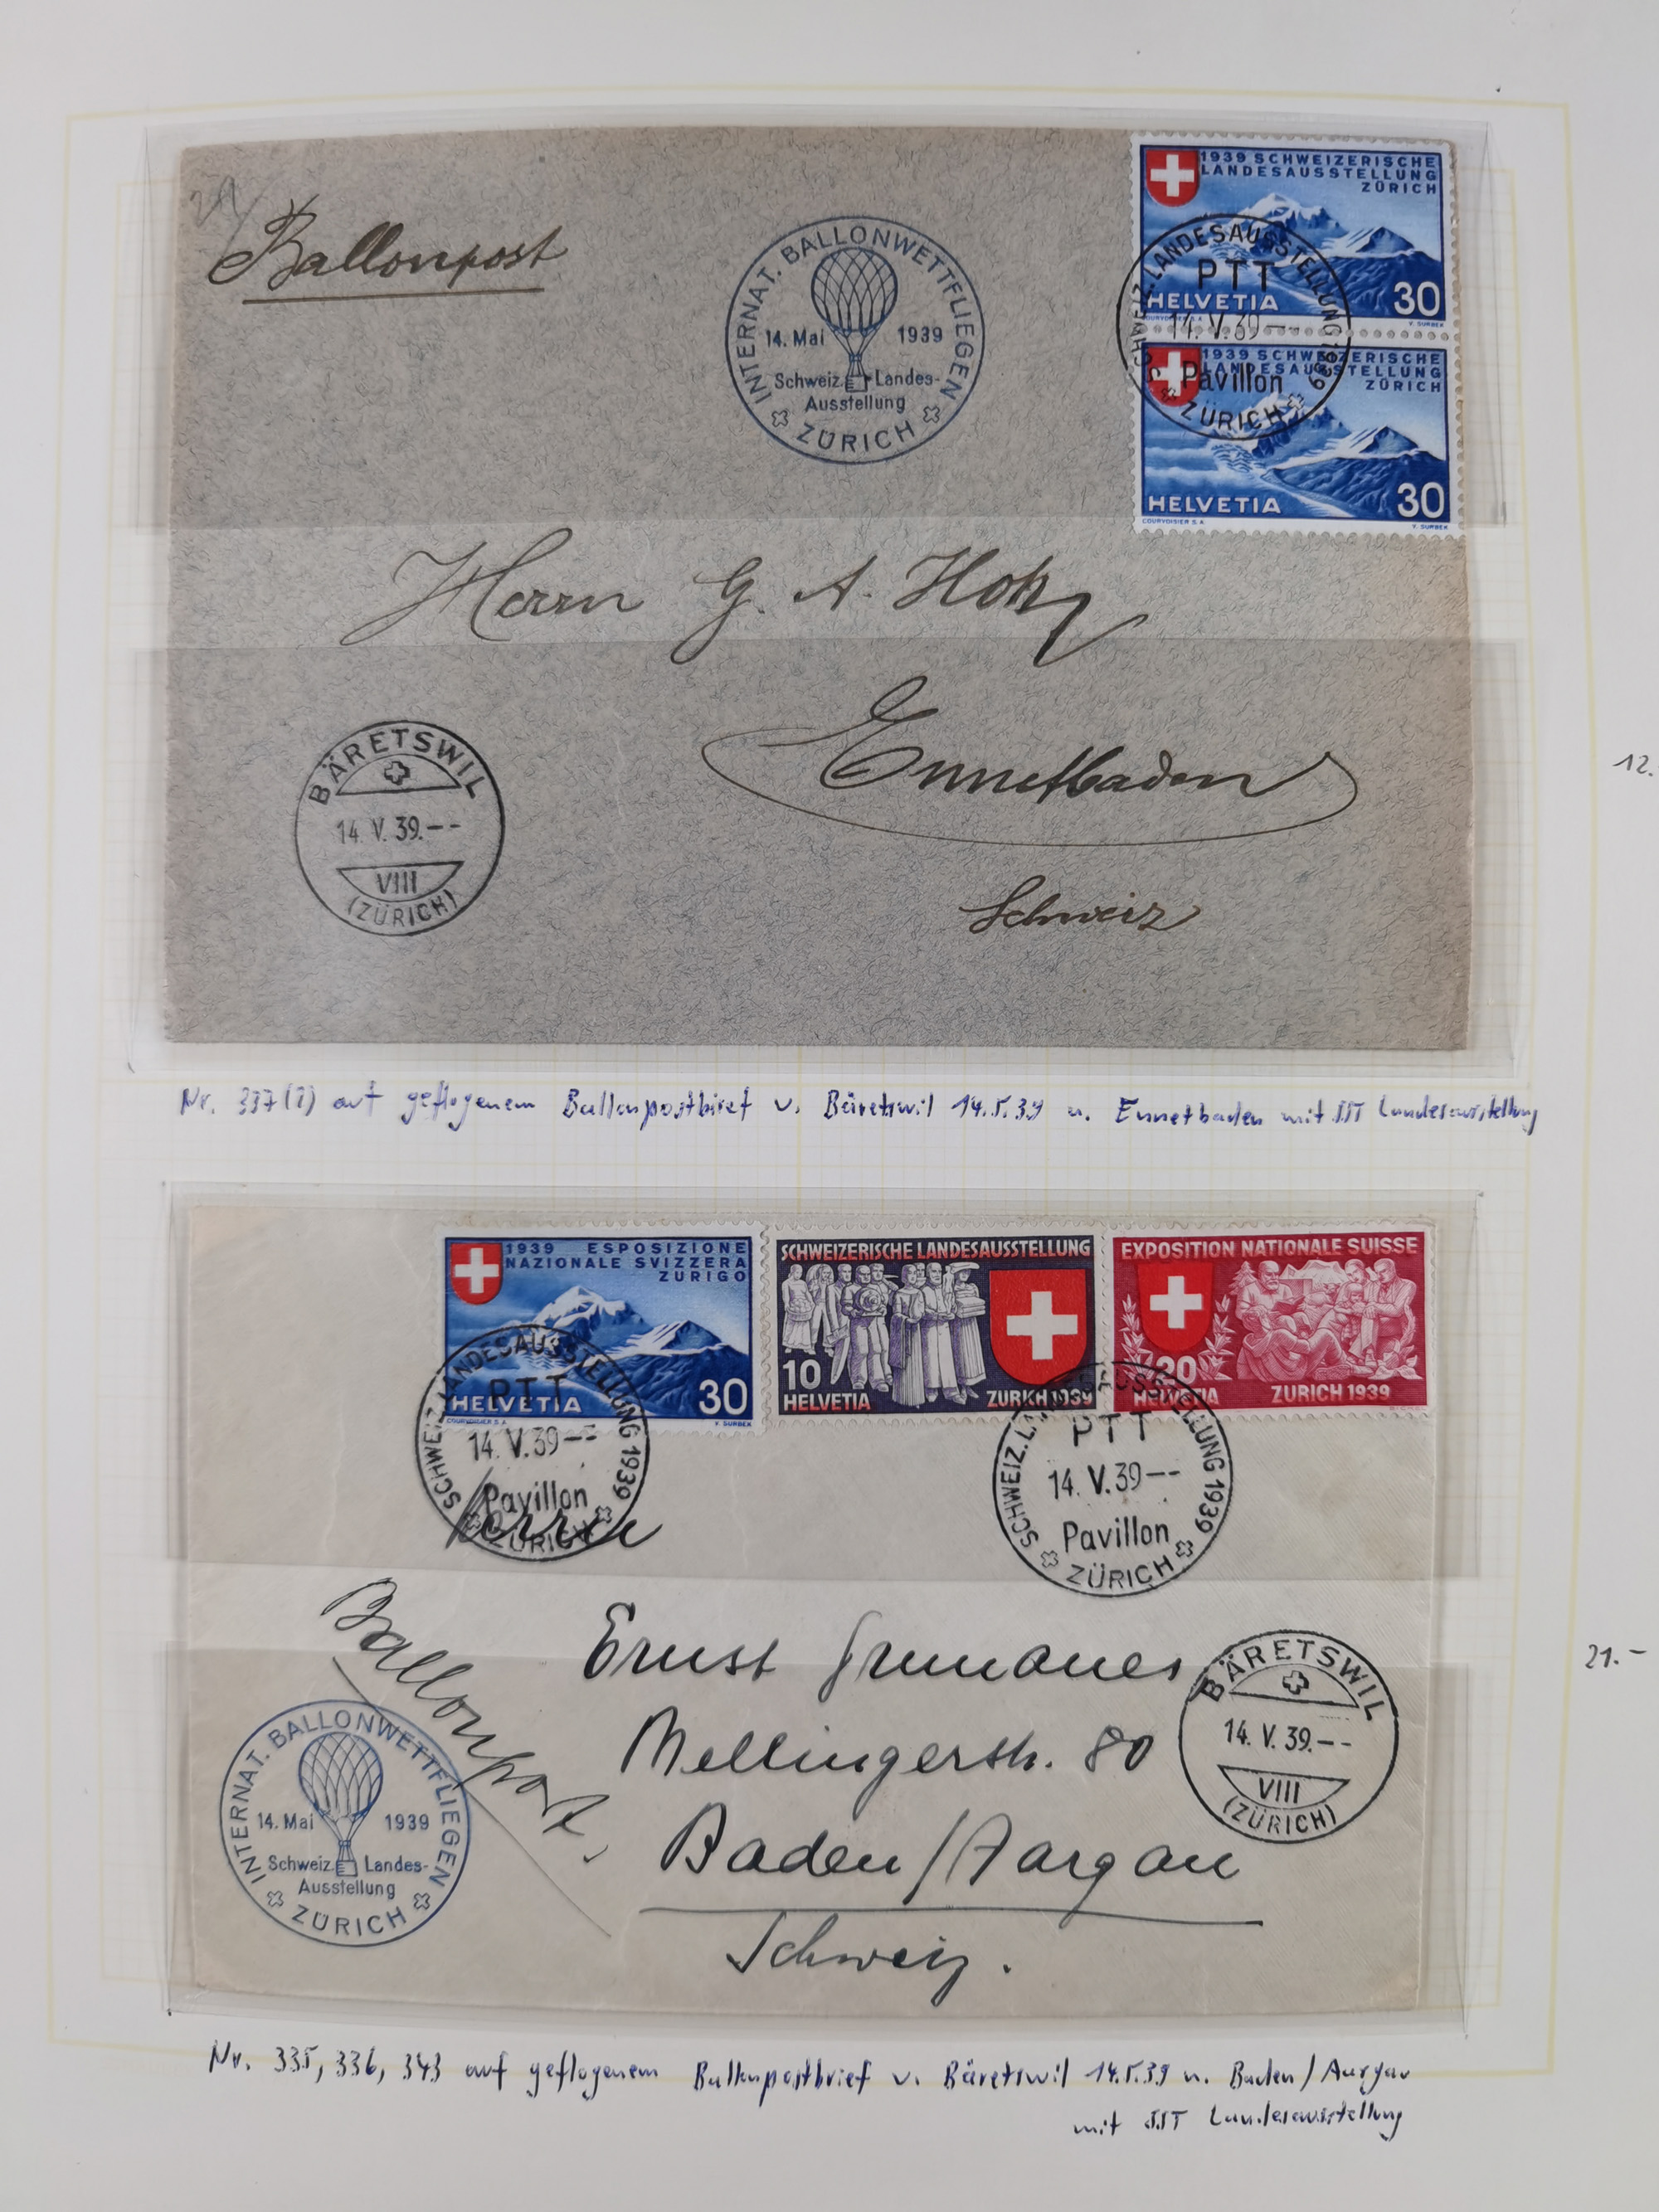 Ballonpost
INTERNAT. BALLONWETTFLIEGEN
14. Mai 1939
Schweiz. Landes-
Ausstellung
ZÜRICH
1939 SCHWEIZERISCHE
LANDESAUSSTELLUNG
ZÜRICH
HELVETIA 30
COURVOISIER S.A. V. SURBEK
SCHWEIZ. LANDESAUSSTELLUNG 1939
PTT
14. V. 39
Pavillon
ZÜRICH
1939 SCHWEIZERISCHE
LANDESAUSSTELLUNG
ZÜRICH
HELVETIA 30
COURVOISIER S.A. V. SURBEK
Herrn G. A. Hotz
Ennetbaden
Schweiz
BÄRETSWIL
14. V. 39.--
VIII
(ZÜRICH)
12.
Nr. 337(2) auf geflogenem Ballonpostbrief v. Bäretswil 14.5.39 n. Ennetbaden mit SST Landesausstellung
1939 ESPOSIZIONE
NAZIONALE SVIZZERA
ZURIGO
HELVETIA 30
COURVOISIER S.A. V. SURBEK
SCHWEIZERISCHE LANDESAUSSTELLUNG
10
HELVETIA ZURICH 1939
EXPOSITION NATIONALE SUISSE
20
HELVETIA ZURICH 1939
SCHWEIZ. LANDESAUSSTELLUNG 1939
PTT
14. V. 39--
Pavillon
ZÜRICH
SCHWEIZ. LANDESAUSSTELLUNG 1939
PTT
14. V. 39--
Pavillon
ZÜRICH
Herrn
Ballonpost
Ernst
Mellingerstr. 80
Baden/Aargau
Schweiz.
BÄRETSWIL
14. V. 39.--
VIII
(ZÜRICH)
INTERNAT. BALLONWETTFLIEGEN
14. Mai 1939
Schweiz. Landes-
Ausstellung
ZÜRICH
21.-
Nr. 335, 336, 343 auf geflogenem Ballonpostbrief v. Bäretswil 14.5.39 n. Baden/Aargau
mit SST Landesausstellung